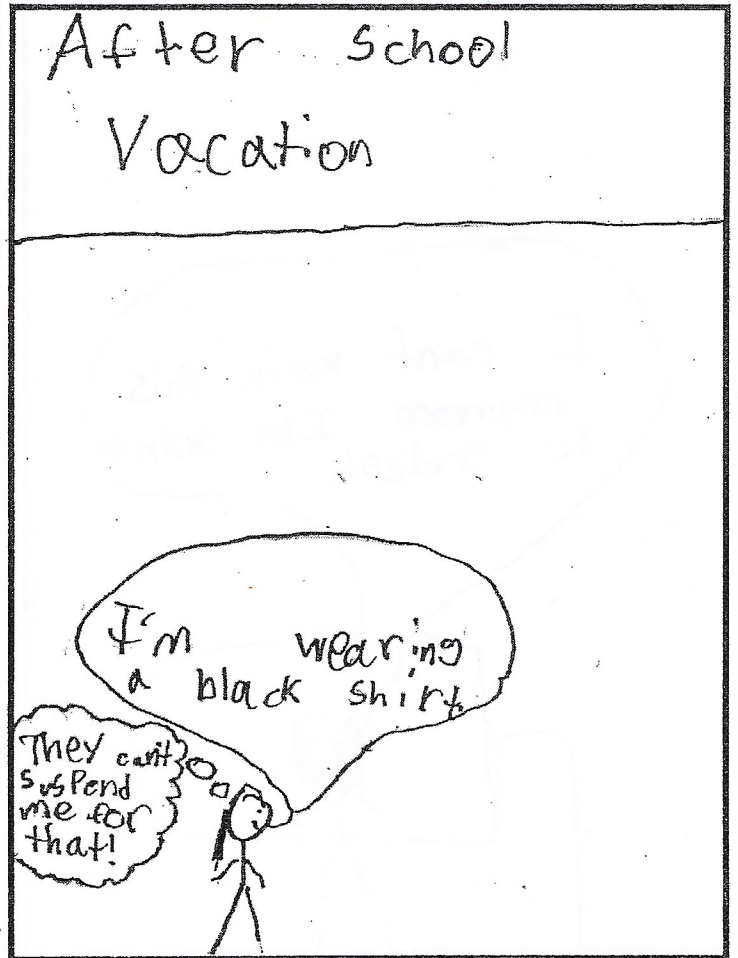 After School
Vacation
I'm wearing
a black shirt
They can't
suspend
me for
that!